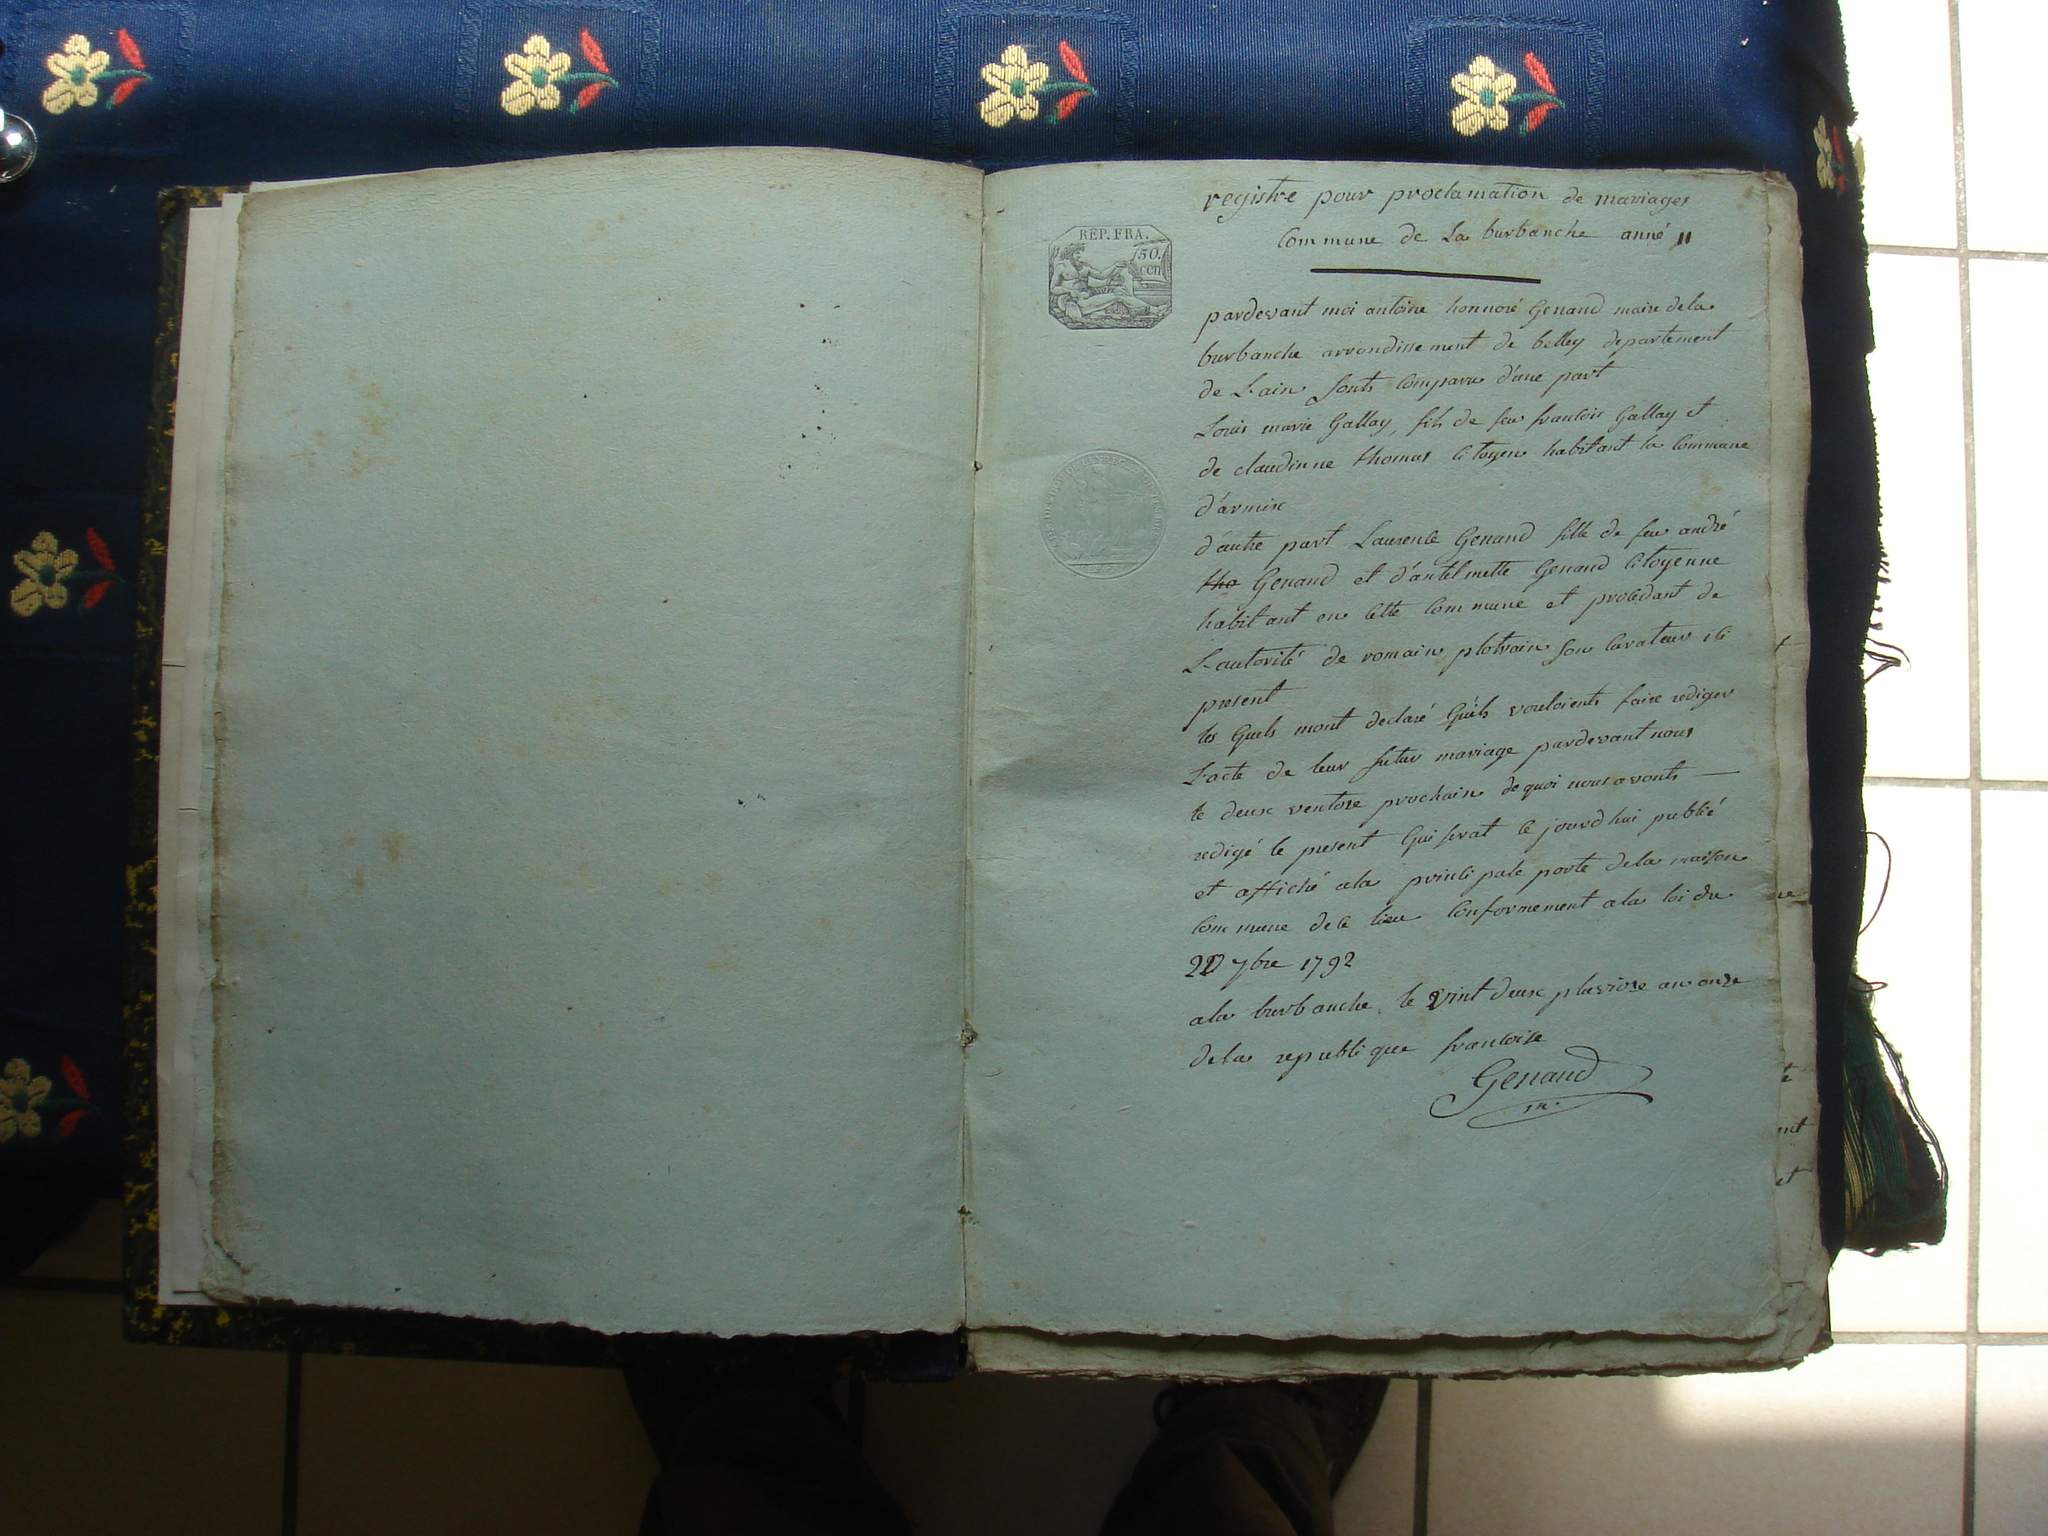 registre pour proclamation de mariages
Commune de La burbanche anné 11
REP. FRA.
50.
cen
pardevant moi antoine honnoré Genand maire dela
burbanche arrondissement de belley departement
de L'ain sonts comparu d'une part
Louis marie Gallay, fils de feu francois Gallay et
de claudinne thomas citoyen habitant la commune
d'armix
d'autre part Laurence Genand fille de feu andré
tho Genand et d'antelmette Genand citoyenne
habitant en cette commune et procedant de
L'autorité de romain plotrain son curateur ici
present
les quels mont declaré qu'ils vouloients faire rediger
L'acte de leur futur mariage pardevant nous
le deux ventose prochain de quoi nous avonts
redigé le present qui serat ce jourd'hui publié
et affiché ala principale porte dela maison
commune de ce lieu conformement ala loi du
7bre 1792
ala burbanche le vint deux pluviose an onze
dela republique francoise
Genand
m.
nt
et